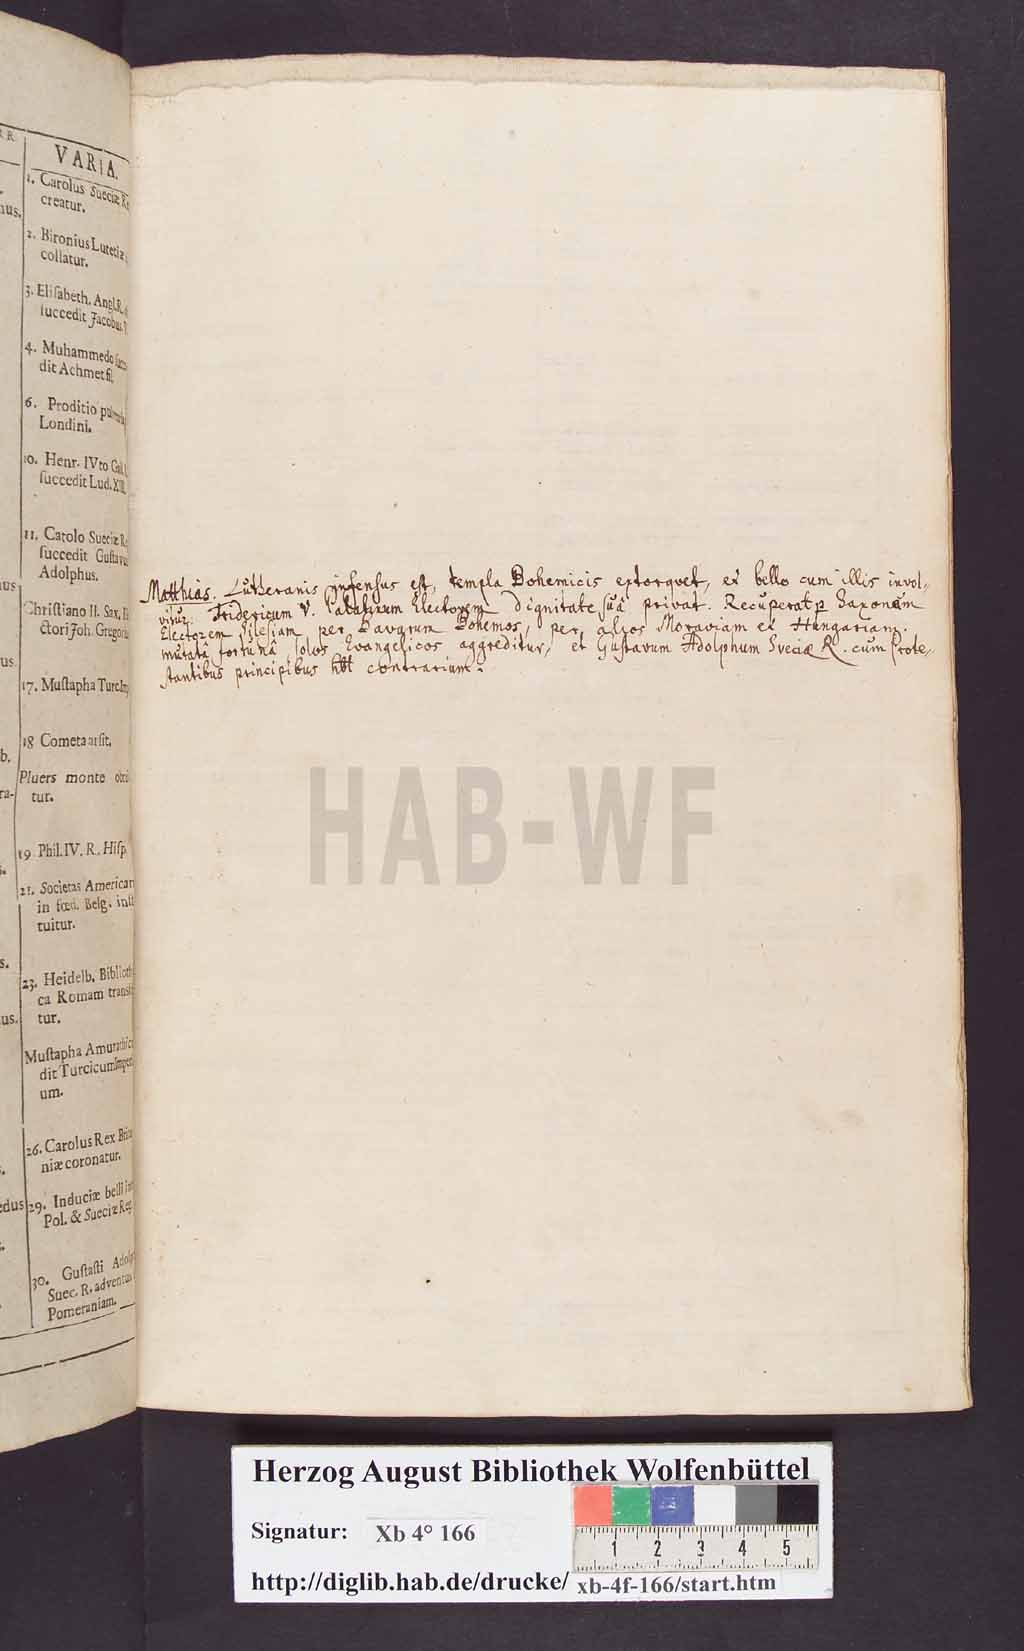 VARIA.
1. Carolus Sueciæ
creatur.
2. Bironius Lutetiæ
collatur.
3. Elisabeth. Angl. R.
succedit Jacobus
4. Muhammedo
dit Achmet fil.
6. Proditio
Londini.
10. Henr. IVto
succedit Lud. XIII.
11. Carolo Sueciæ
succedit Gustavus
Adolphus.
Christiano II. Sax.
ctori Joh. Georgius
17. Mustapha Turc.
18 Cometa arsit.
Pluers monte
tur.
19 Phil. IV. R. Hisp.
21. Societas American
in fœd. Belg. insti
tuitur.
23. Heidelb. Bibliothe
ca Romam
tur.
Mustapha
dit Turcicum
um.
26. Carolus Rex
niæ coronatur.
29. Induciæ belli
Pol. & Sueciæ Reg.
30. Gustasti
Suec. R. adventus
Pomeraniam.
Matthias. Lutheranis infensus est, templa Bohemicis extorquet, et bello cum illis invol-
vitur. Fridericum V. Palatinum Electorem Dignitate suâ privat. Recuperat p Saxonem
Electorem Silesiam, per Bavarum Bohemos, per alios Moraviam et Hungariam.
mutatâ fortunâ solos Evangelicos aggreditur, et Gustavum Adolphum Sveciæ R. cum Prote-
stantibus principibus hbt contrarium.
HAB-WF
Herzog August Bibliothek Wolfenbüttel
Signatur: Xb 4° 166
1 2 3 4 5
http://diglib.hab.de/drucke/ xb-4f-166/start.htm